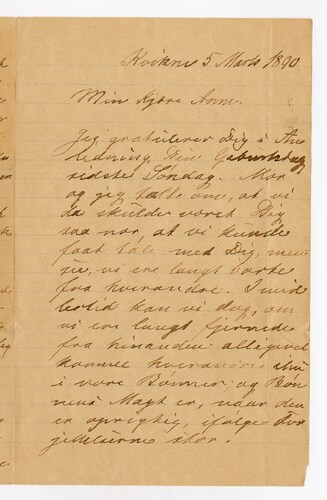 Kvikne 5 Marts 1890
Min Kjære Anne.
Jeg gratulerer Dig i An
ledning Din Geburtsdag
sidste Søndag. Mor
og jeg talte om, at vi
da skulde været Dig
saa nær, at vi kunde
faat tale med Dig, men
vi ere langt borte
fra hverandre. Imid
lertid kan vi dog, om
vi ere langt fjernede
fra hinanden alligevel
komme hverandre ihu
i vore Bønner; og Bøn
nens Magt er, naar den
er oprigtig, ifølge For
jættelserne stor.